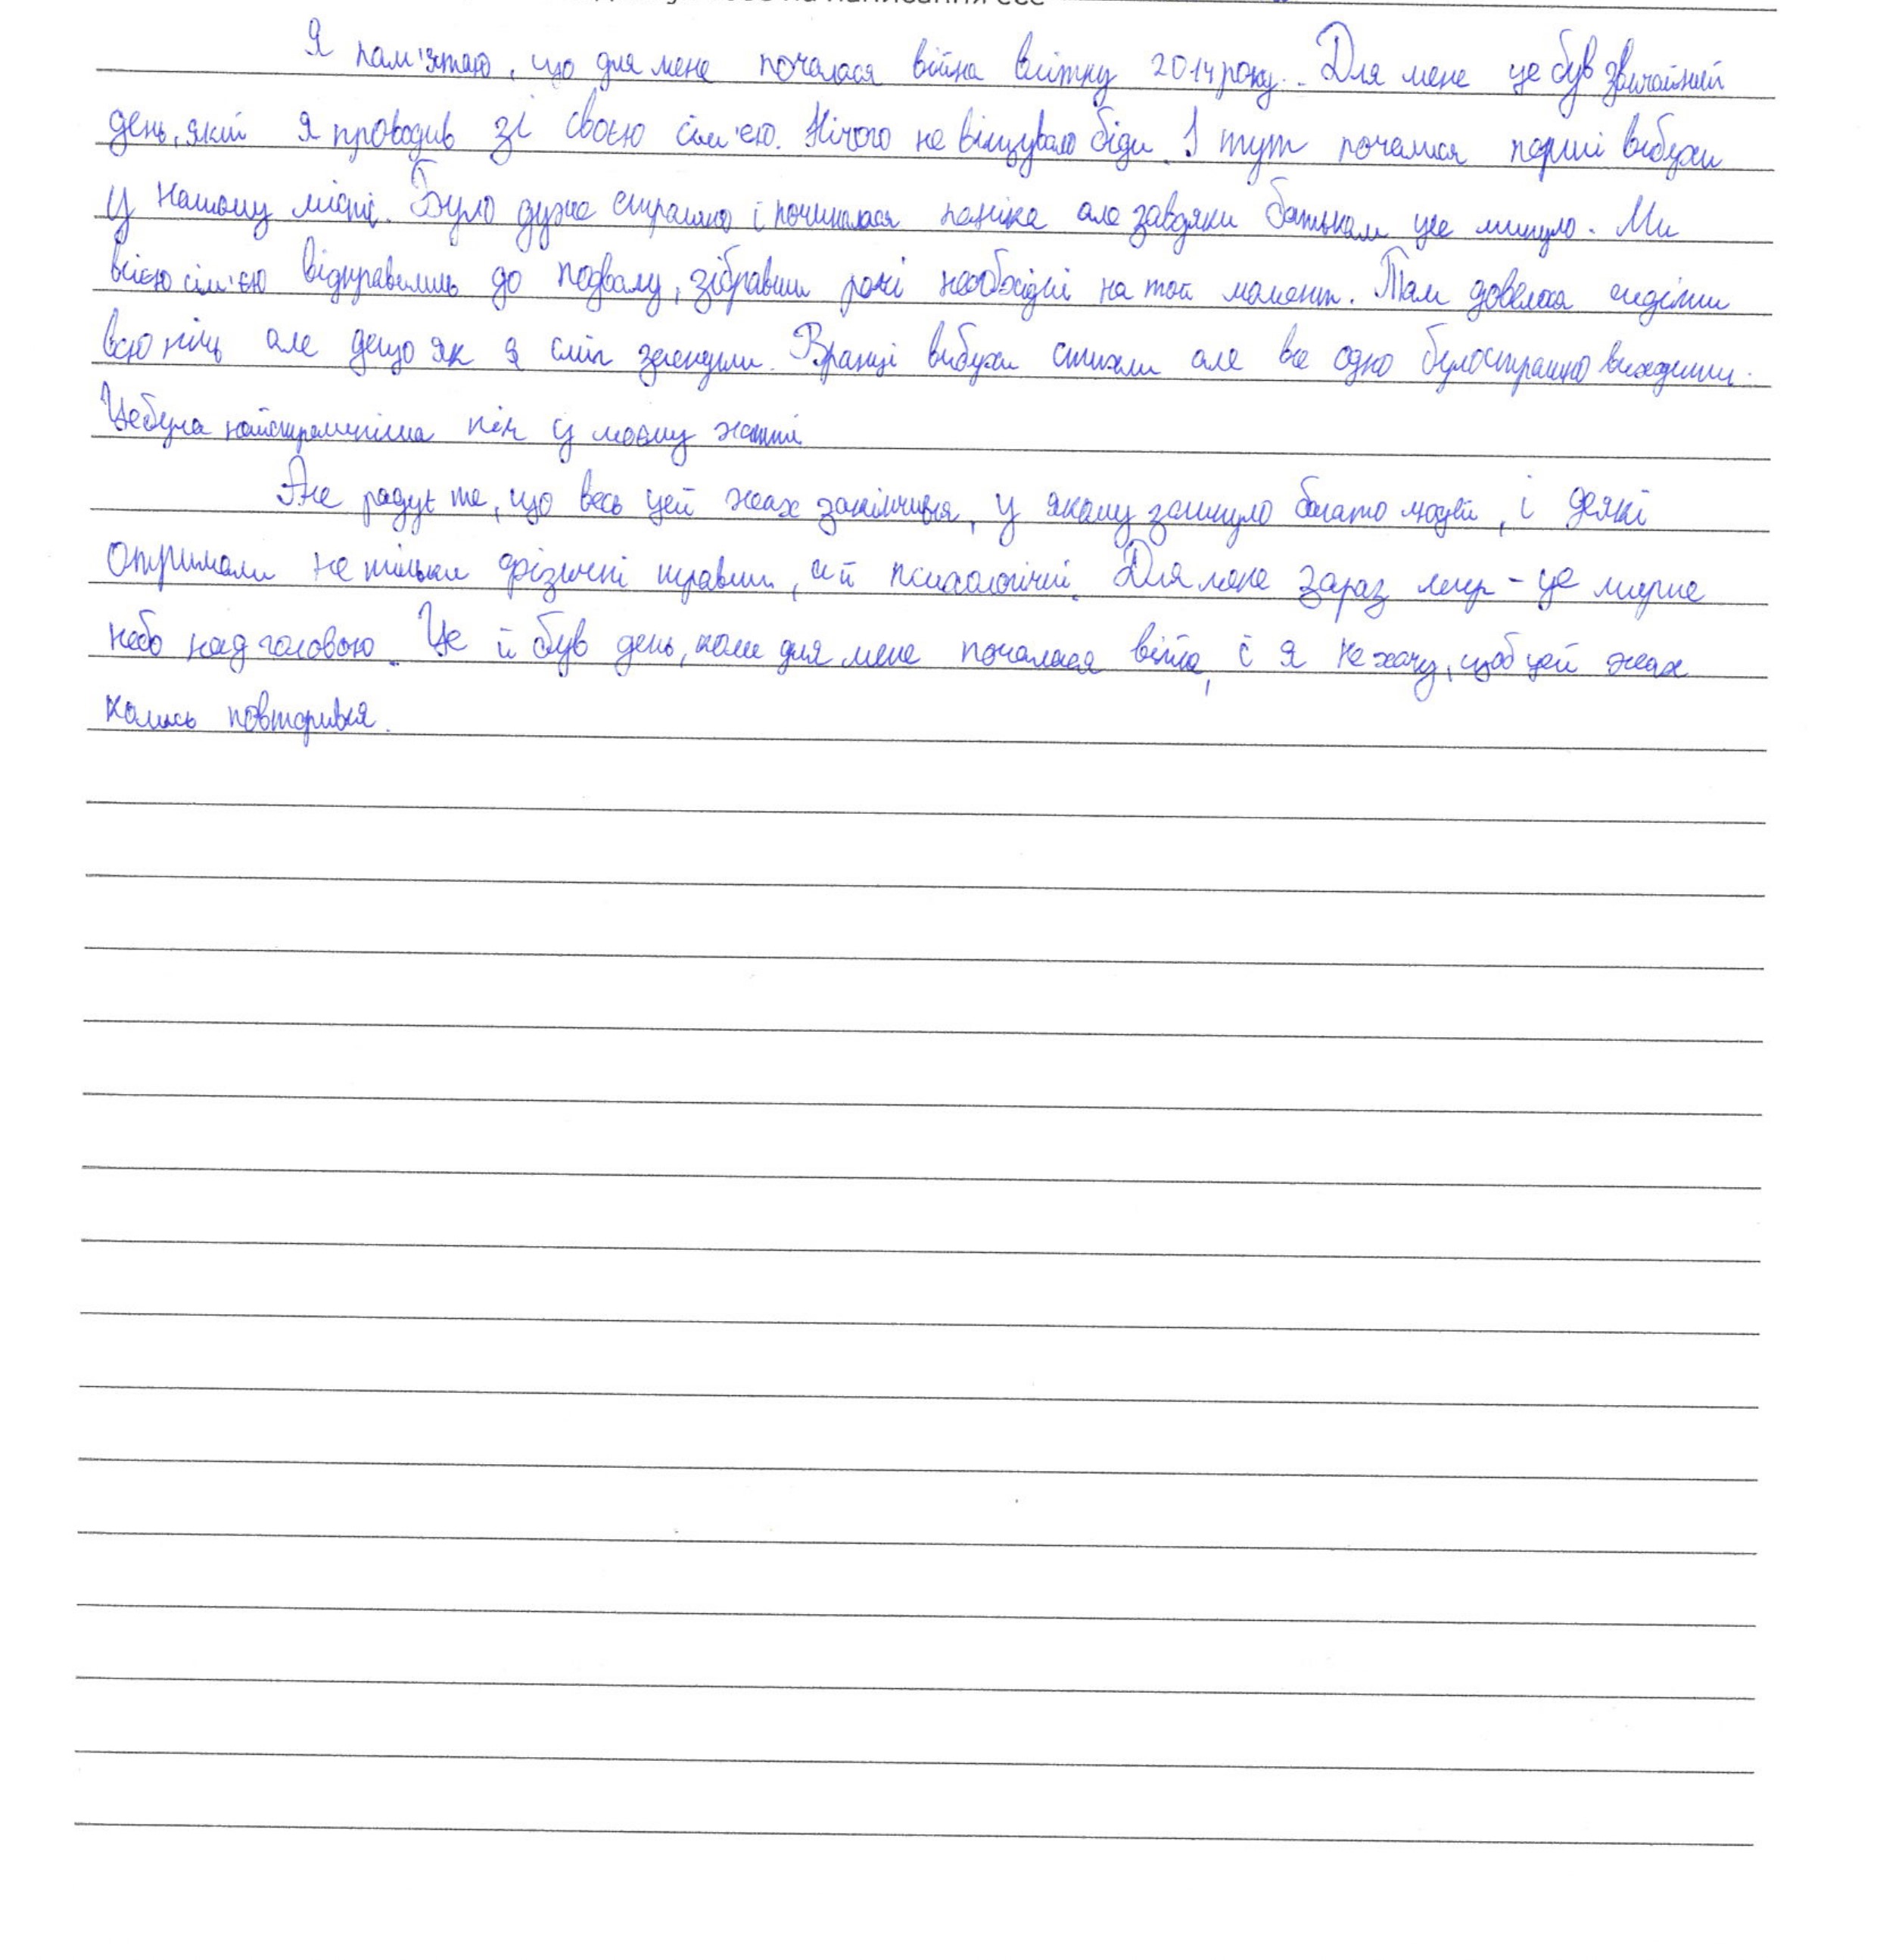 Я пам'ятаю, що для мене почалася війна влітку 2014 року. Для мене це був звичайний
день, який я проводив зі своєю сім'єю. Нічого не віщувало біди. І тут почалися перші вибухи
у нашому місті. Було дуже страшно і починалася паніка але завдяки батькам це минуло. Ми
всією сім'єю відправились до подвалу, зібравши речі необхідні на той момент. Там довелося сидіти
всю ніч але дещо як я сміг заснули. Вранці вибухи стихли але все одно було страшно виходити.
Це була найстрашніша ніч у моєму житті
Але радує те, що весь цей жах закінчився, у якому загинуло багато людей, і деякі
отримали не тільки фізичні травми, а й психологічні. Для мене зараз мир - це мирне
небо над головою. Це й був день, коли для мене почалася війна, і я не хочу, щоб цей жах
колись повторився.